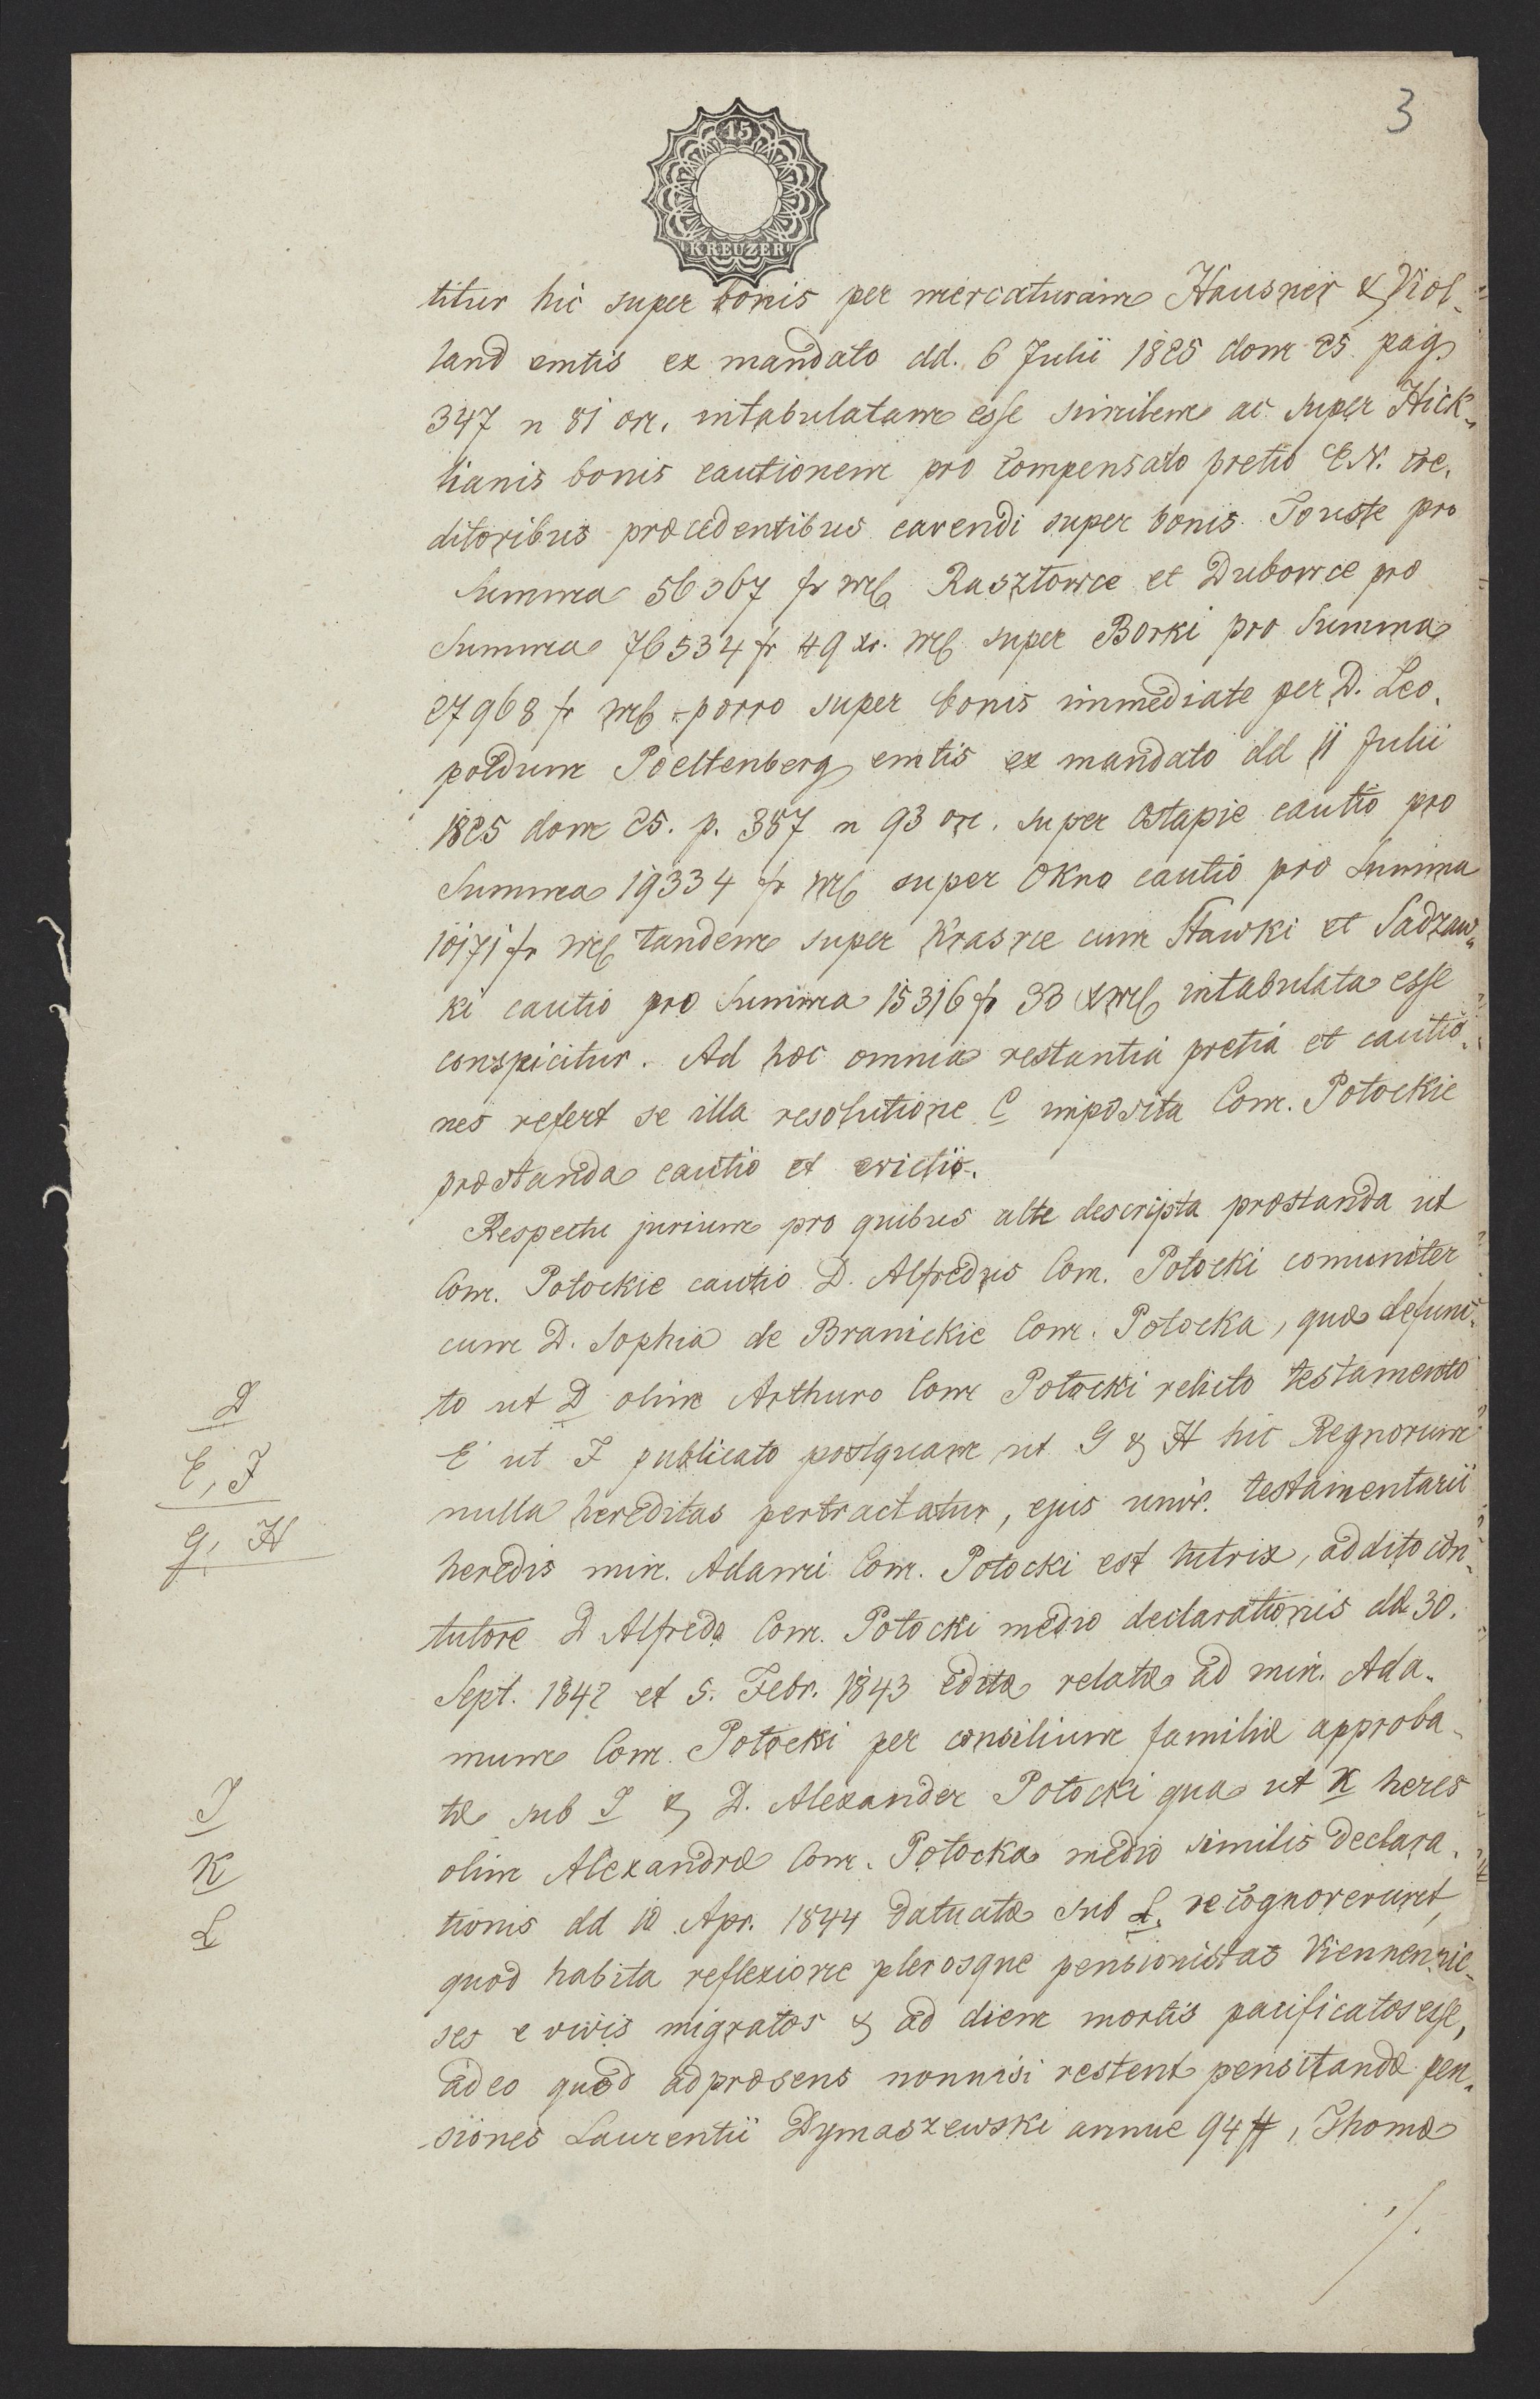 3
15
KREUZER
titur hic super bonis per mercaturam Hausner & Viol-
land emtis ex mandato dd. 6 Julii 1825 dom 25. pag
347 n 81 on. intabulatam esse similem ac super Hick-
lianis bonis cautionem pro compensato pretio E.N. cre-
ditoribus præcedentibus cavendi super bonis Touste pro
Summa 56367 fr Mß Rasztowce et Dubowce pro
Summa 76534 fr 49 xr. Mß super Borki pro Summa
27968 fr Mß porro super bonis immediate per D. Leo-
poldum Poeltenberg emtis ex mandato dd 11 Julii
1825 dom 25. p. 387 n 93 on. super Ostapie cautio pro
Summa 19334 fr Mß super Okno cautio pro Summa
10171 fr Mß tandem super Krasne cum Stawki et Sadzaw-
ki cautio pro Summa 15316 fr 33 x Mß intabulata esse
conspicitur. Ad hæc omnia restantia pretia et cautio-
nes refert se illa resolutione C imposita Com. Potockie
præstanda cautio et evictio.
Respectu jurium pro quibus alte descripta præstanda ut
Com. Potockie cautio D. Alfredus Com. Potocki comuniter
cum D. Sophia de Branickie Com. Potocka, quæ defunc-
to ut D olim Arthuro Com Potocki relicto testamento
D
E ut F publicato postquam ut G & H hic Regnorum
E, F
nulla hereditas pertractatur, ejus univ. testamentarii
G, H
heredis min. Adami Com. Potocki est tutrix, addito con-
tutore D Alfredo Com. Potocki medio declarationis dd 30.
Sept. 1842 et 5. Febr. 1843 editæ relatæ ad min. Ada-
mum Com. Potocki per consilium familiæ approba-
tæ sub I & D. Alexander Potocki qua ut K heres
I
olim Alexandræ Com. Potocka medio similis declara-
K
tionis dd 10 Apr. 1844 datuatæ sub L. recognoverunt,
L
quod habita reflexione plerosque pensionistas Viennen-
ses e vivis migratos & ad diem mortis pacificatos esse,
adeo quod ad præsens nonnisi restent pensitandæ pen-
siones Laurentii Dymaszewski annue 94 #, Thomæ
./.